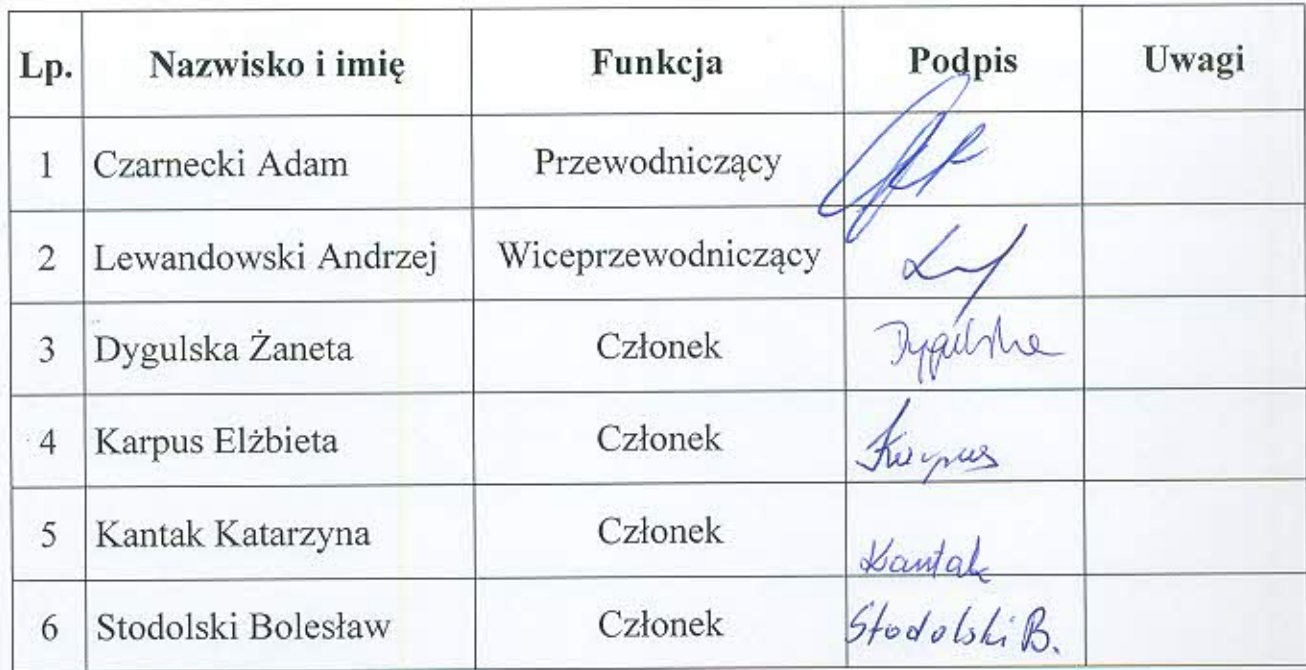 Lp. Nazwisko i imię Funkcja Podpis Uwagi
1 Czarnecki Adam Przewodniczący
2 Lewandowski Andrzej Wiceprzewodniczący
3 Dygulska Żaneta Członek Dygulska
4 Karpus Elżbieta Członek Karpus
5 Kantak Katarzyna Członek Kantak
6 Stodolski Bolesław Członek Stodolski B.